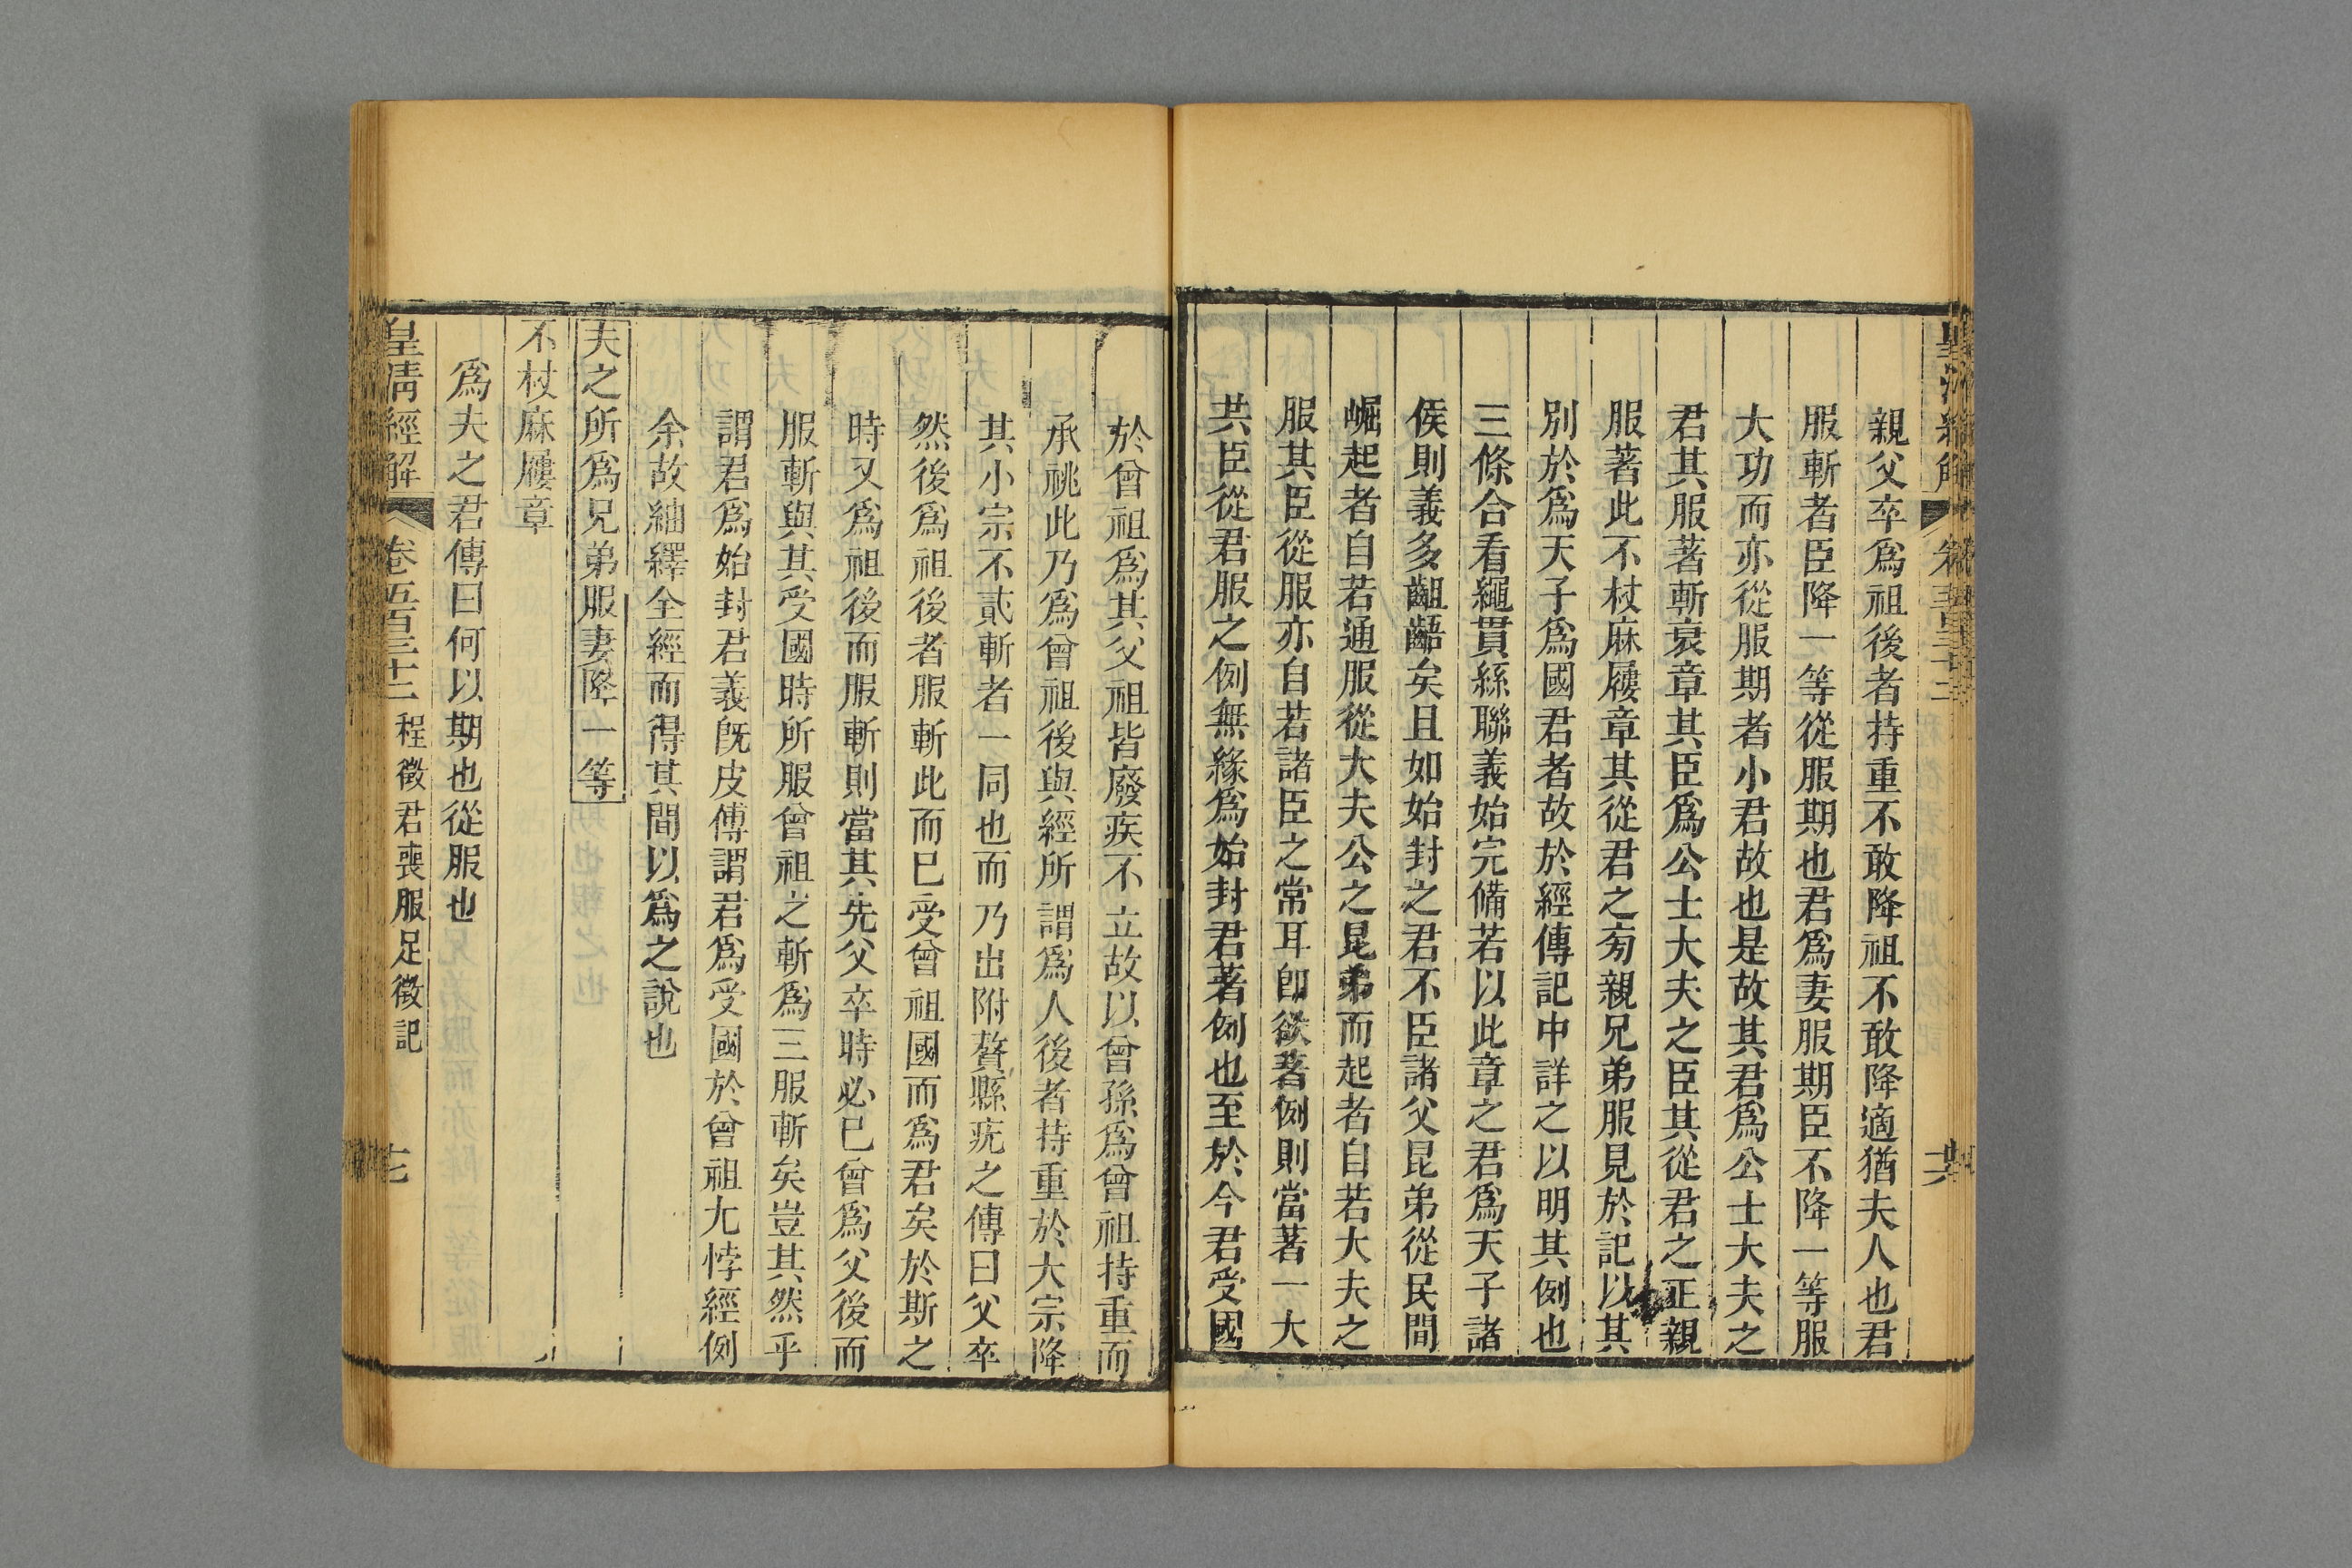 親父卒爲祖後者持重不敢降祖不敢降適猶夫人也君
服斬者臣降一等從服期也君爲妻服期臣不降一等服
大功而亦從服期者小君故也是故其君爲公士大夫之
君其服著斬衰章其臣爲公士大夫之臣其從君之正親
服著此不杖麻屨章其從君之旁親兄弟服見於記以其
別於爲天子爲國君者故於經傳記中詳之以明其例也
三條合看繩貫絲聯義始完備若以此章之君爲天子諸
侯則義多齟齬矣且如始封之君不臣諸父昆弟從民間
崛起者自若通服從大夫公之昆弟而起者自若大夫之
服其臣從服亦自若諸臣之常耳卽欲著例則當著一大
共臣從君服之例無緣爲始封君著例也至於今君受國
於曾祖爲其父祖皆廢疾不立故以曾孫爲曾祖持重而
承祧此乃爲曾祖後與經所謂爲人後者持重於大宗降
其小宗不貳斬者一同也而乃出附贅縣疣之傳曰父卒
然後爲祖後者服斬此而已受曾祖國而爲君矣於斯之
時又爲祖後而服斬則當其先父卒時必已曾爲父後而
服斬與其受國時所服曾祖之斬爲三服斬矣豈其然乎
謂君爲始封君義旣皮傅謂君爲受國於曾祖尢悖經例
余故紬繹全經而得其間以爲之說也
夫之所爲兄弟服妻降一等
不杖麻屨章
爲夫之君傳曰何以期也從服也
皇淸經解 卷五百三十二 程徵君喪服足徵記 十七